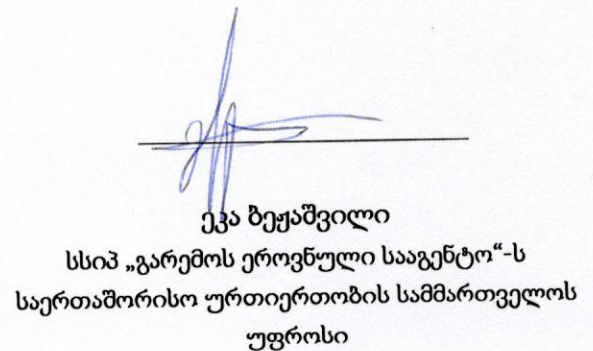 ეკა ბეჟაშვილი
სსიპ „გარემოს ეროვნული სააგენტო“-ს
საერთაშორისო ურთიერთობის სამმართველოს
უფროსი